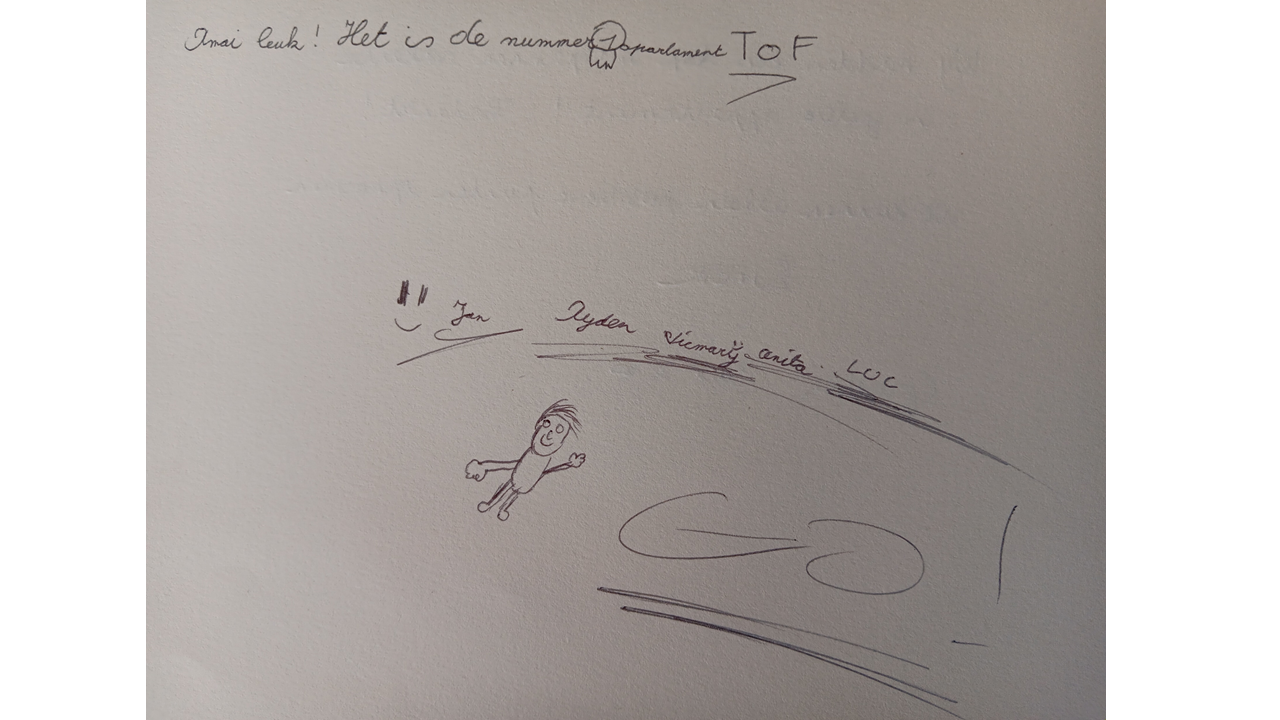 Amai leuk! Het is de nummer 1 aparlament TOF
Jan Ayden Liemarij anita. LUC
GO!